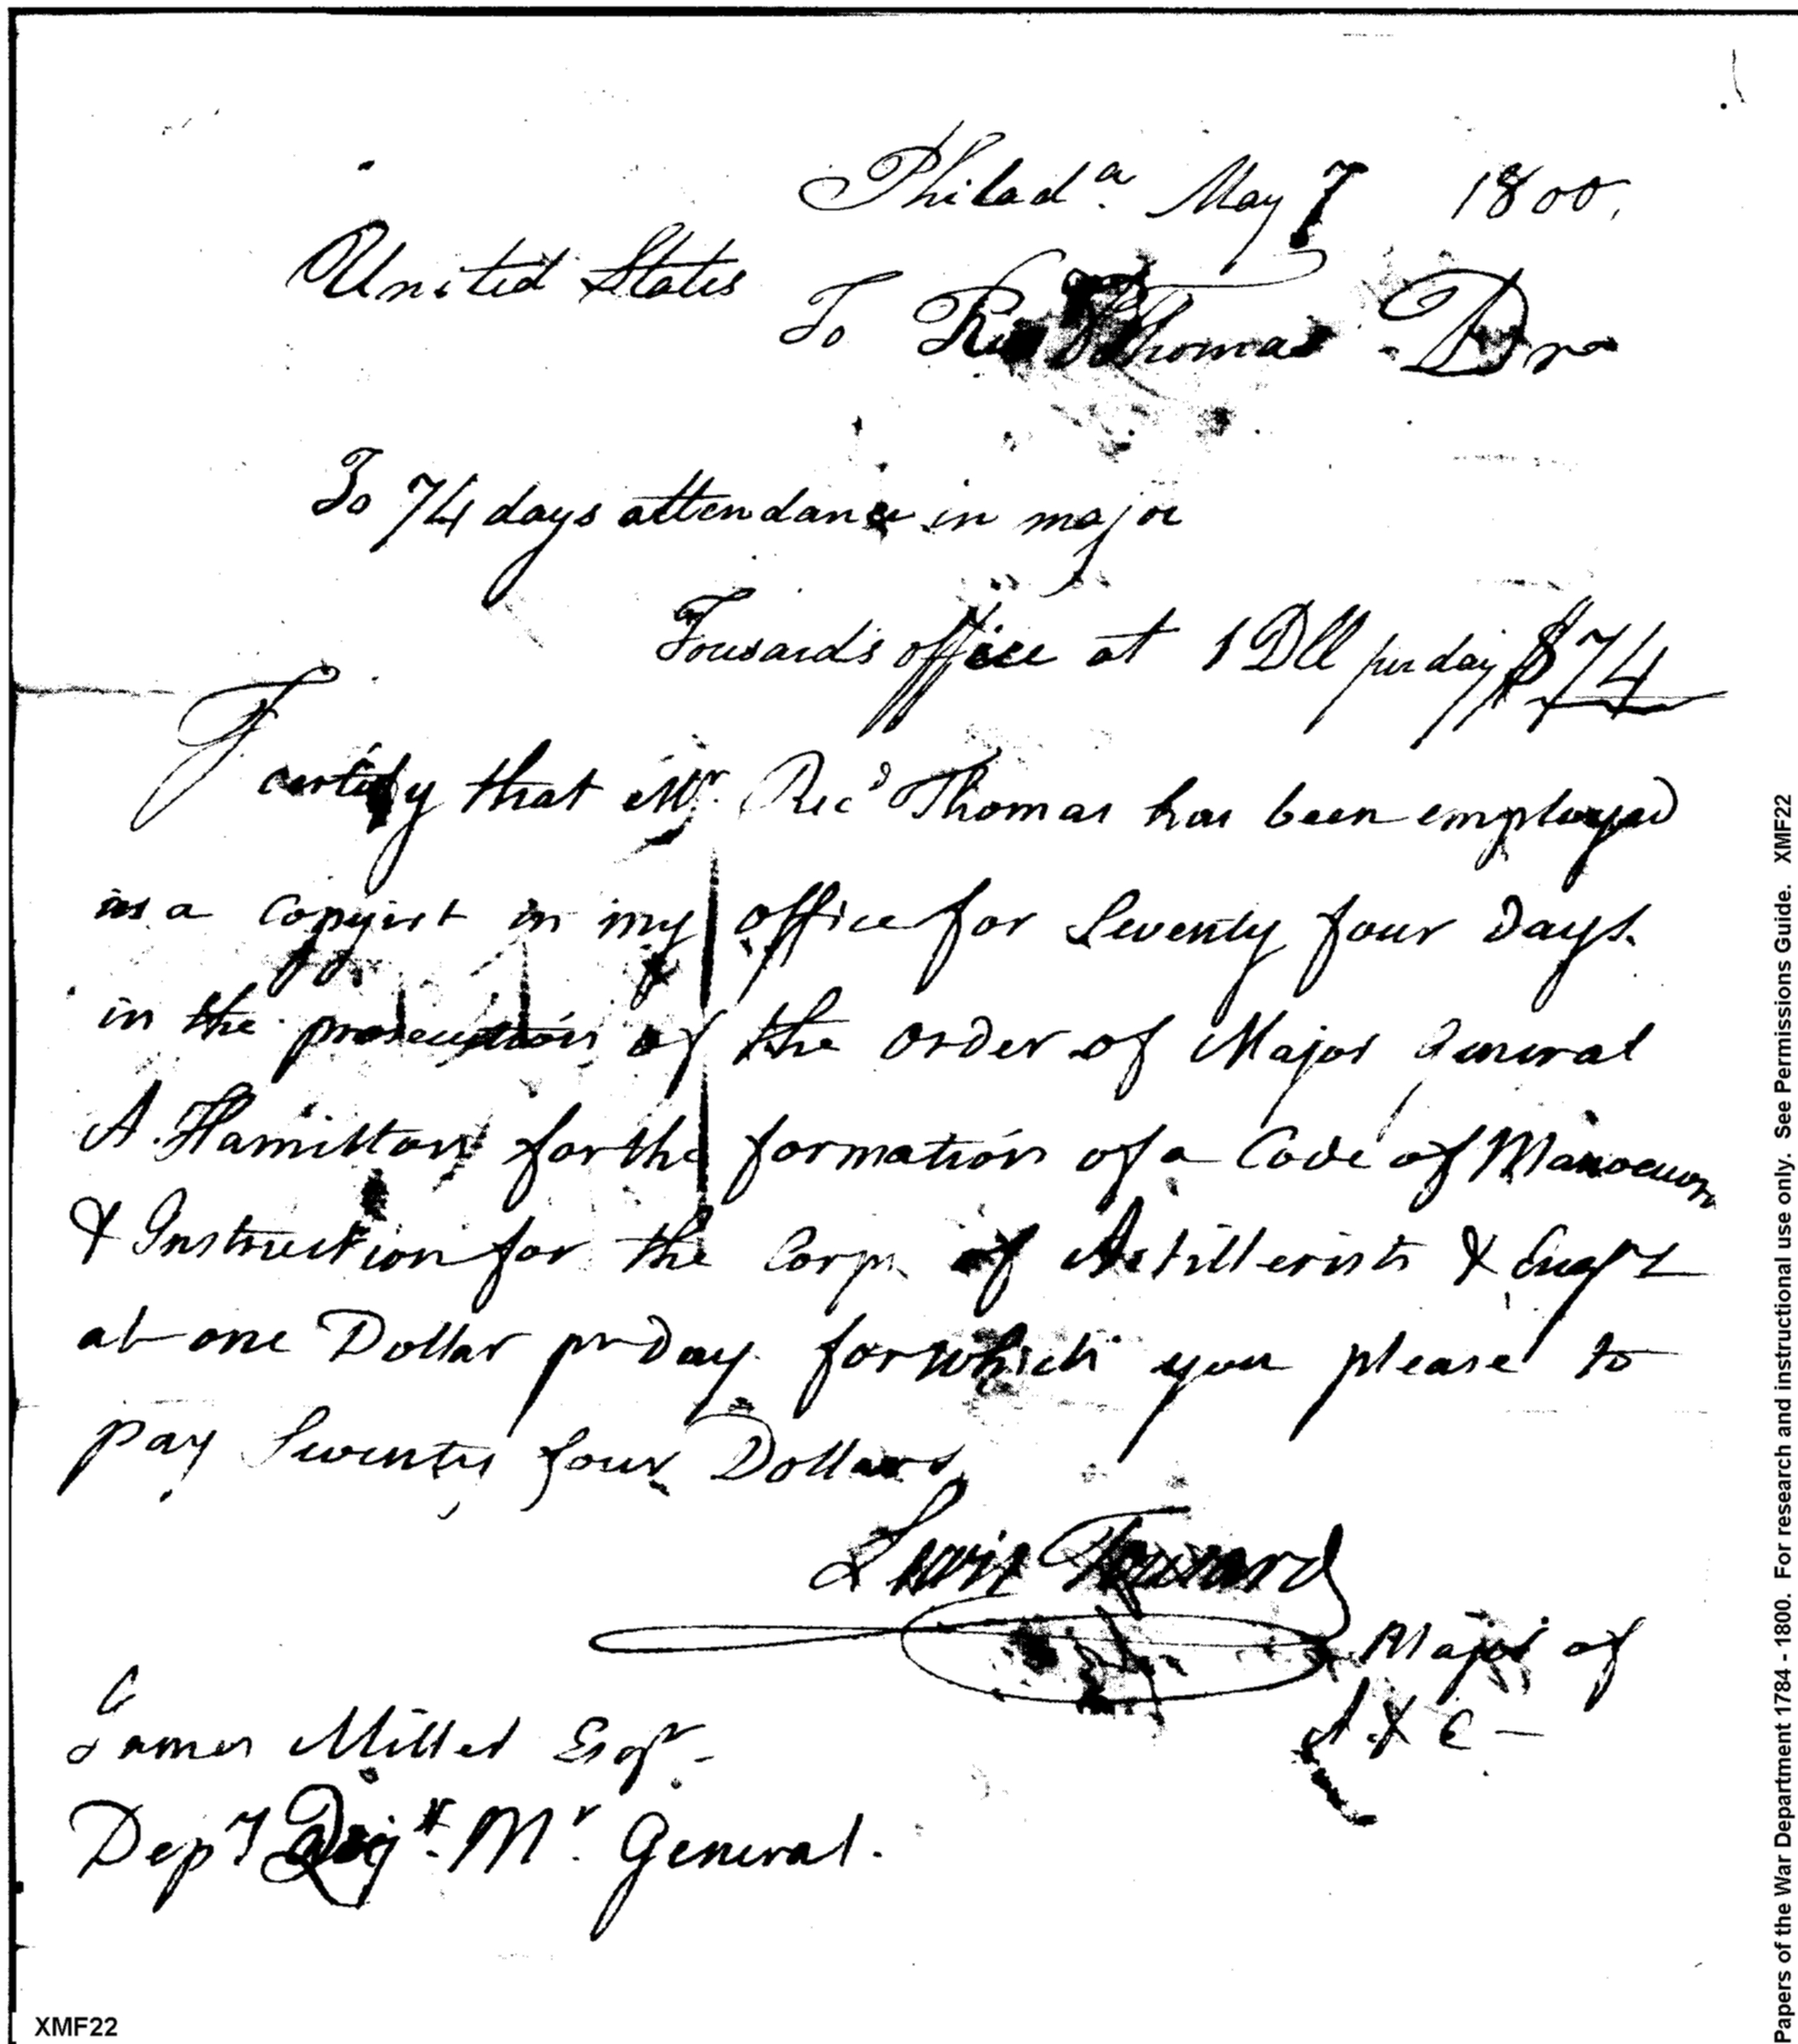 Philad.a May 7 1800.
United States
To Ric Thomas Dr
To 74 days attendance in major
Tousard's office at 1 Dll per day $74
I certify that Mr. Ricd Thomas has been employed
as a Copyist in my office for Seventy four Days.
in the prosecution of the order of Major General
A. Hamilton for the formation of a Code of Manoeuvre
& Instruction for the Corps of Artillerists & Engrs
at one Dollar pr Day for which you please to
pay Seventy four Dollars
Lewis Tousard
Major of
A & E
James Miller Esqr.
Depy Qr Mr. General.
XMF22
Papers of the War Department 1784 - 1800. For research and instructional use only. See Permissions Guide. XMF22